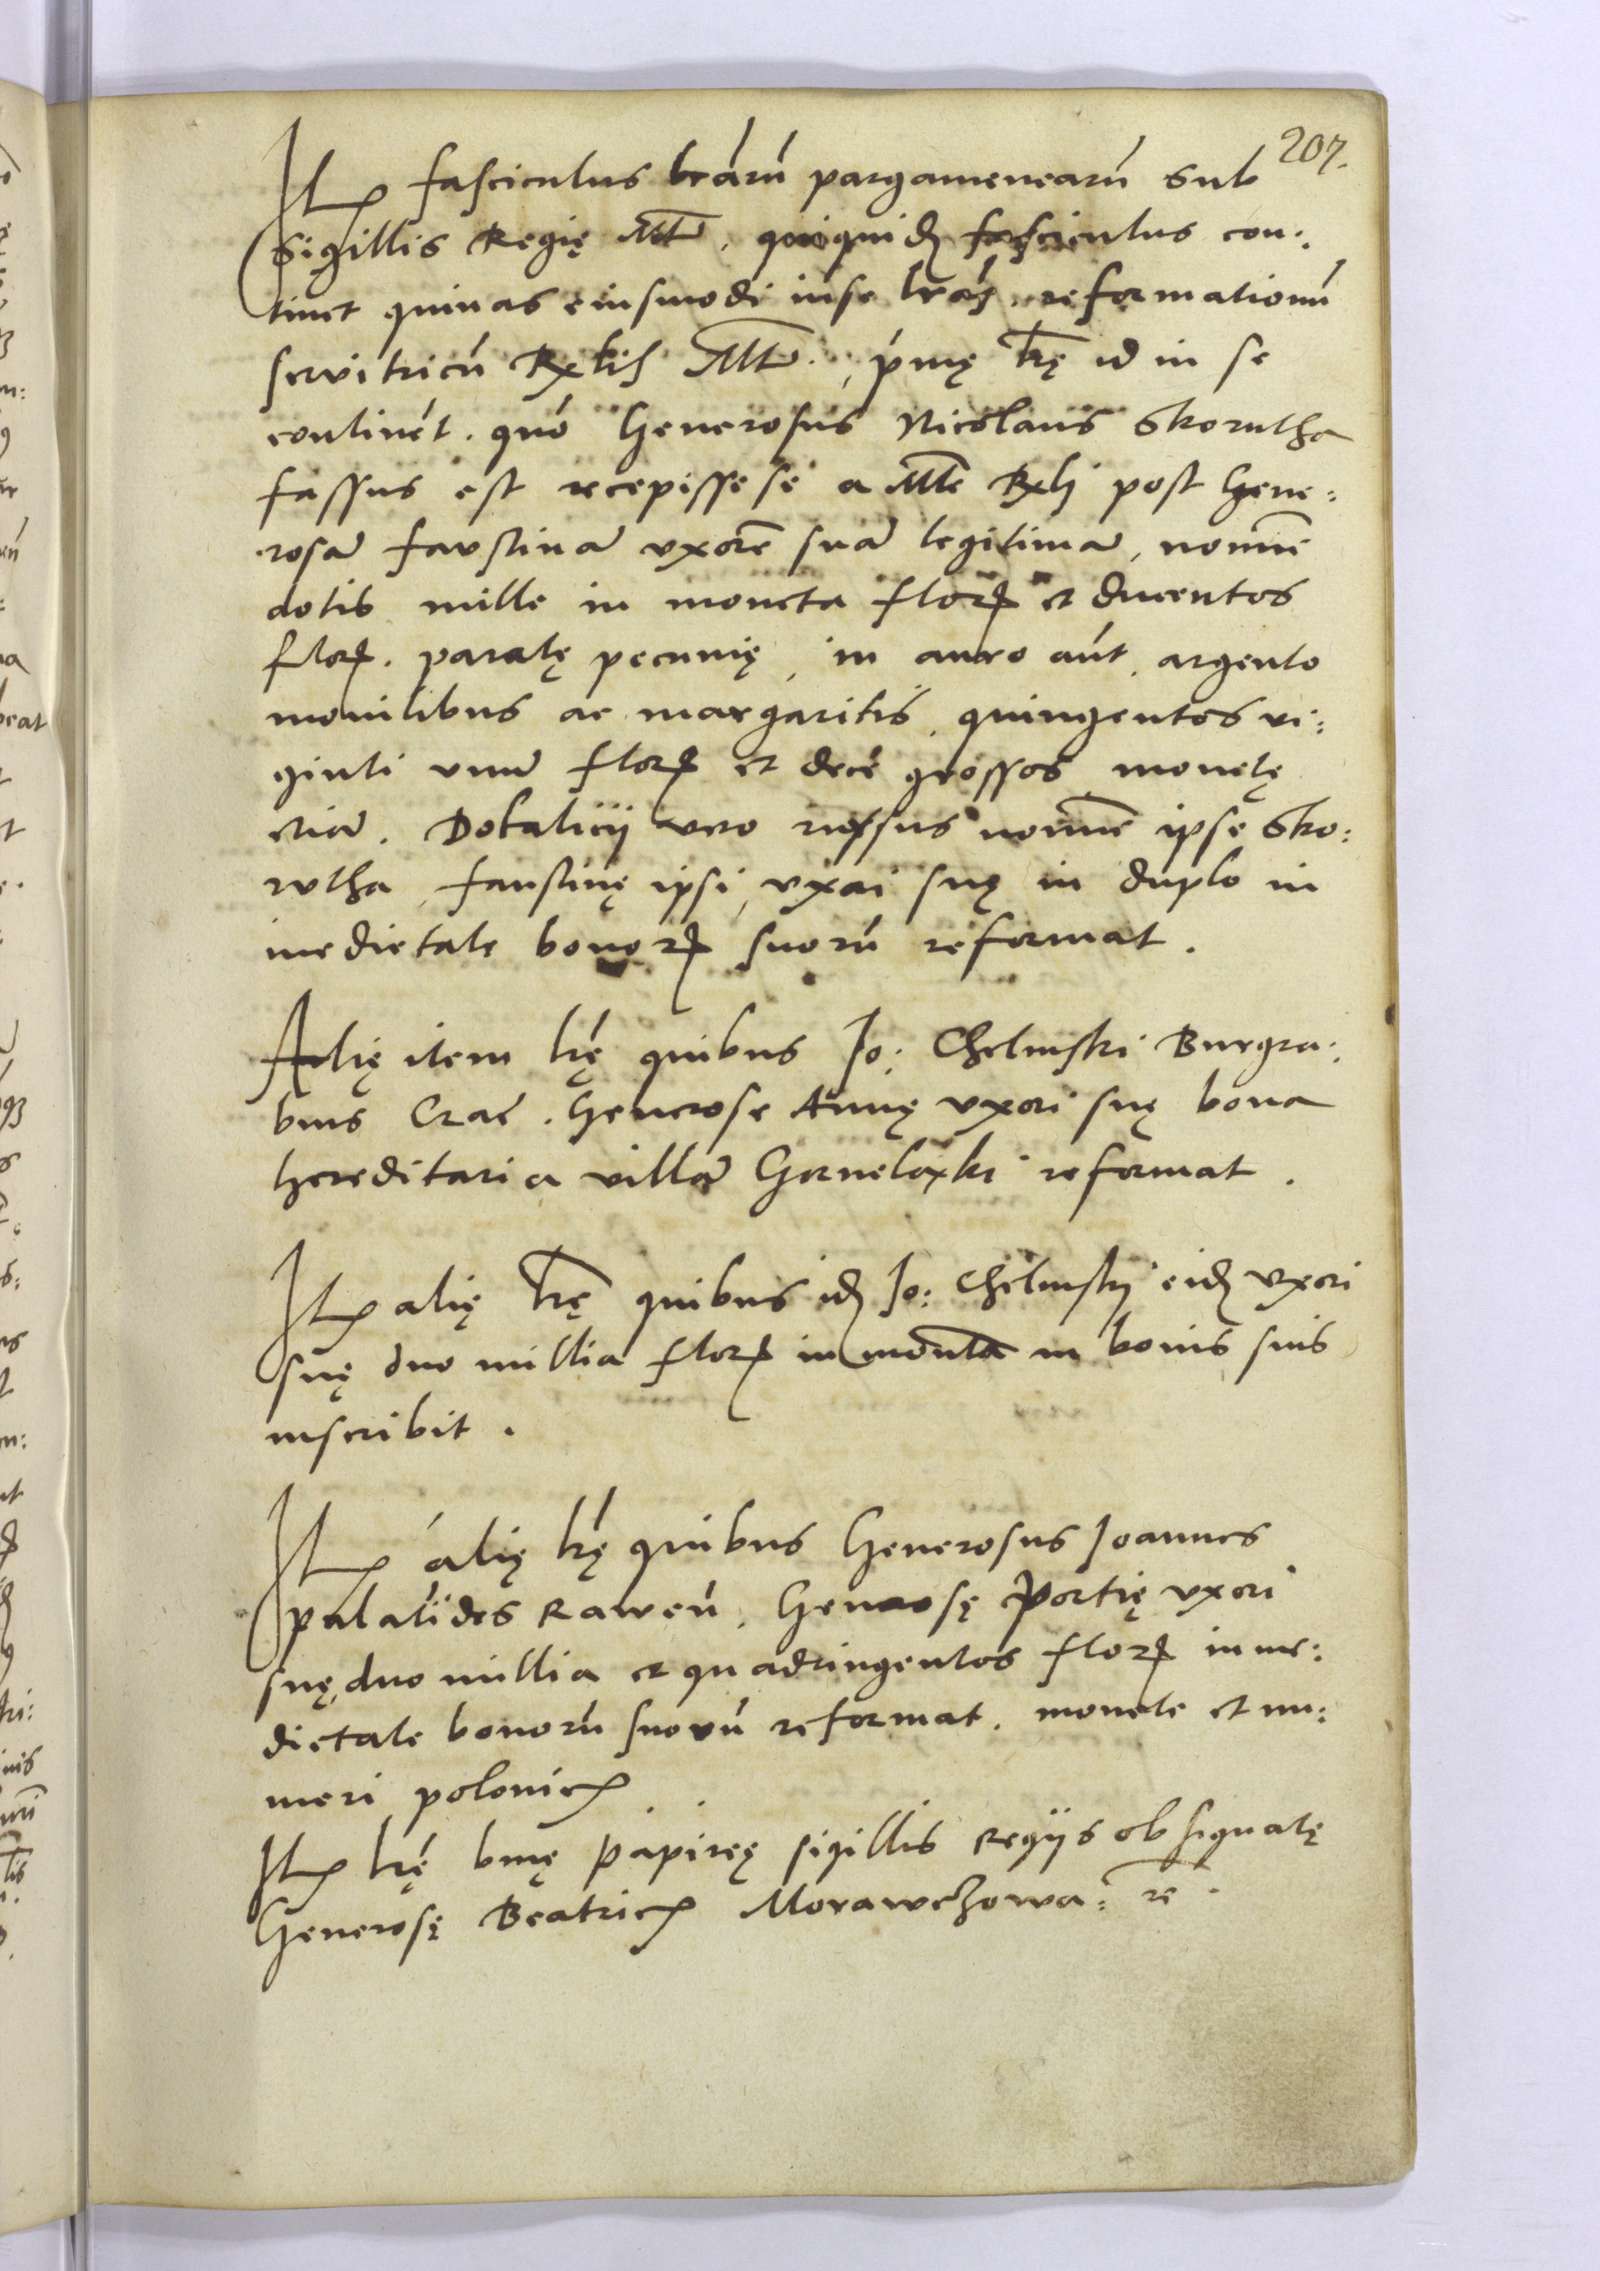 207.
Itẽ fasciculus lrarũ pargamenearũ sub
sigillis Regię Mtis, quiquidẽ fasciculus con:
tinet quinas eiusmodi in se lrás, reformationũ
servitricũ Rglis Mtis, prímę lrę id in se
continẽt. quó Generosus Nicolaus Skorutha
fassus est recepisse se a Mte Rgli post Gene:
rosã faustinã vxorẽ suã legitimã, nomine
dotis mille in moneta florẽ et ducentos
florẽ. paratę pecunię, in auro aũt, argento
monilibus ac margaritis, quingentos vi:
ginti vnũ florẽ et decẽ grossos monetę
etiã. Dotalicij vero rursus nomine ipse Sko:
rutha, faustinę ipsi, vxori suę in duplo in
medietate bonorũ suorũ reformat.
Alię item lrę quibus Jo: Chelmski Burgra:
bius Crac. Generose Annę vxori suę bona
hereditaria villã Gornelaxki reformat.
Itẽ alię lrę quibus idẽ Jo: Chelmskj eidẽ vxori
suę duo millia florẽ in moneta in bonis suis
inscribit.
Itẽ alię lrę quibus Generosus Joannes
palatides Raweñ. Generosę Portię vxori
suę, duo millia et quadringentos florẽ in me:
dietate bonorũ suorũ reformat, monete et nu:
meri polonicẽ
Itẽ lrę binę papireę sigillis Regijs obsignatę
Generosę Beatricẽ Morawczowa: re.